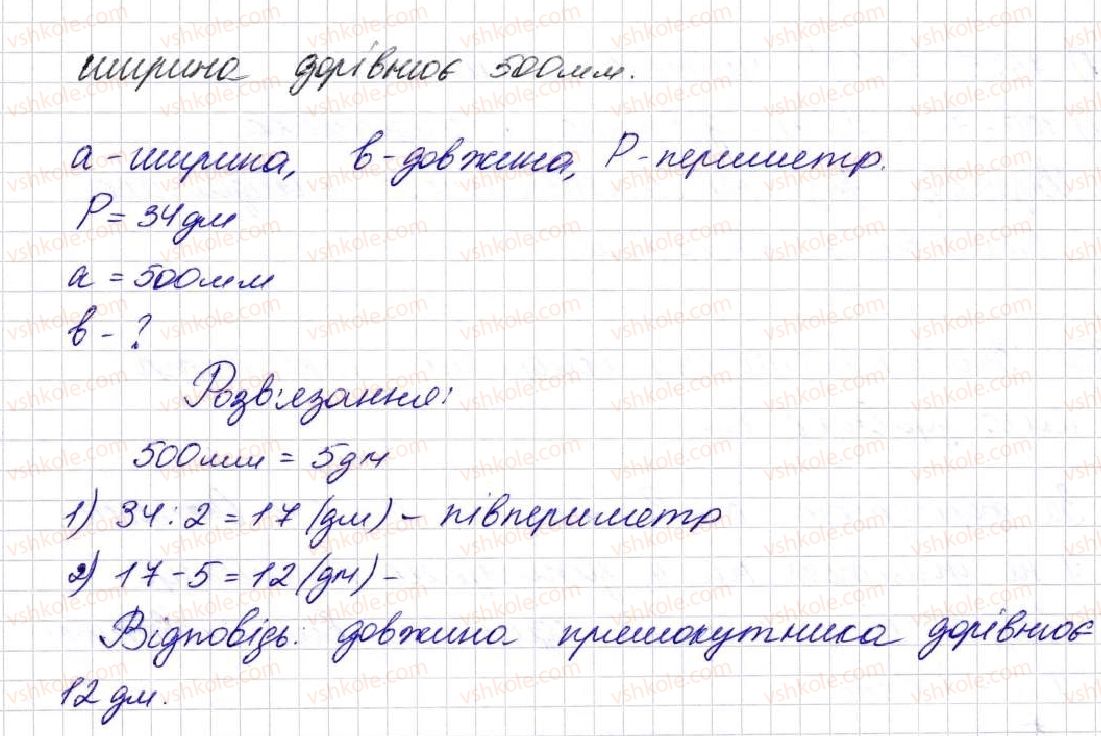 ширина дорівнює 500мм.
а - ширина, в - довжина, Р - периметр.
Р = 34 дм
а = 500мм
в - ?
Розв'язання:
500мм = 5дм
1) 34 : 2 = 17 (дм) - півпериметр
2) 17 - 5 = 12 (дм) -
Відповідь: довжина прямокутника дорівнює
12 дм.
vshkole.com